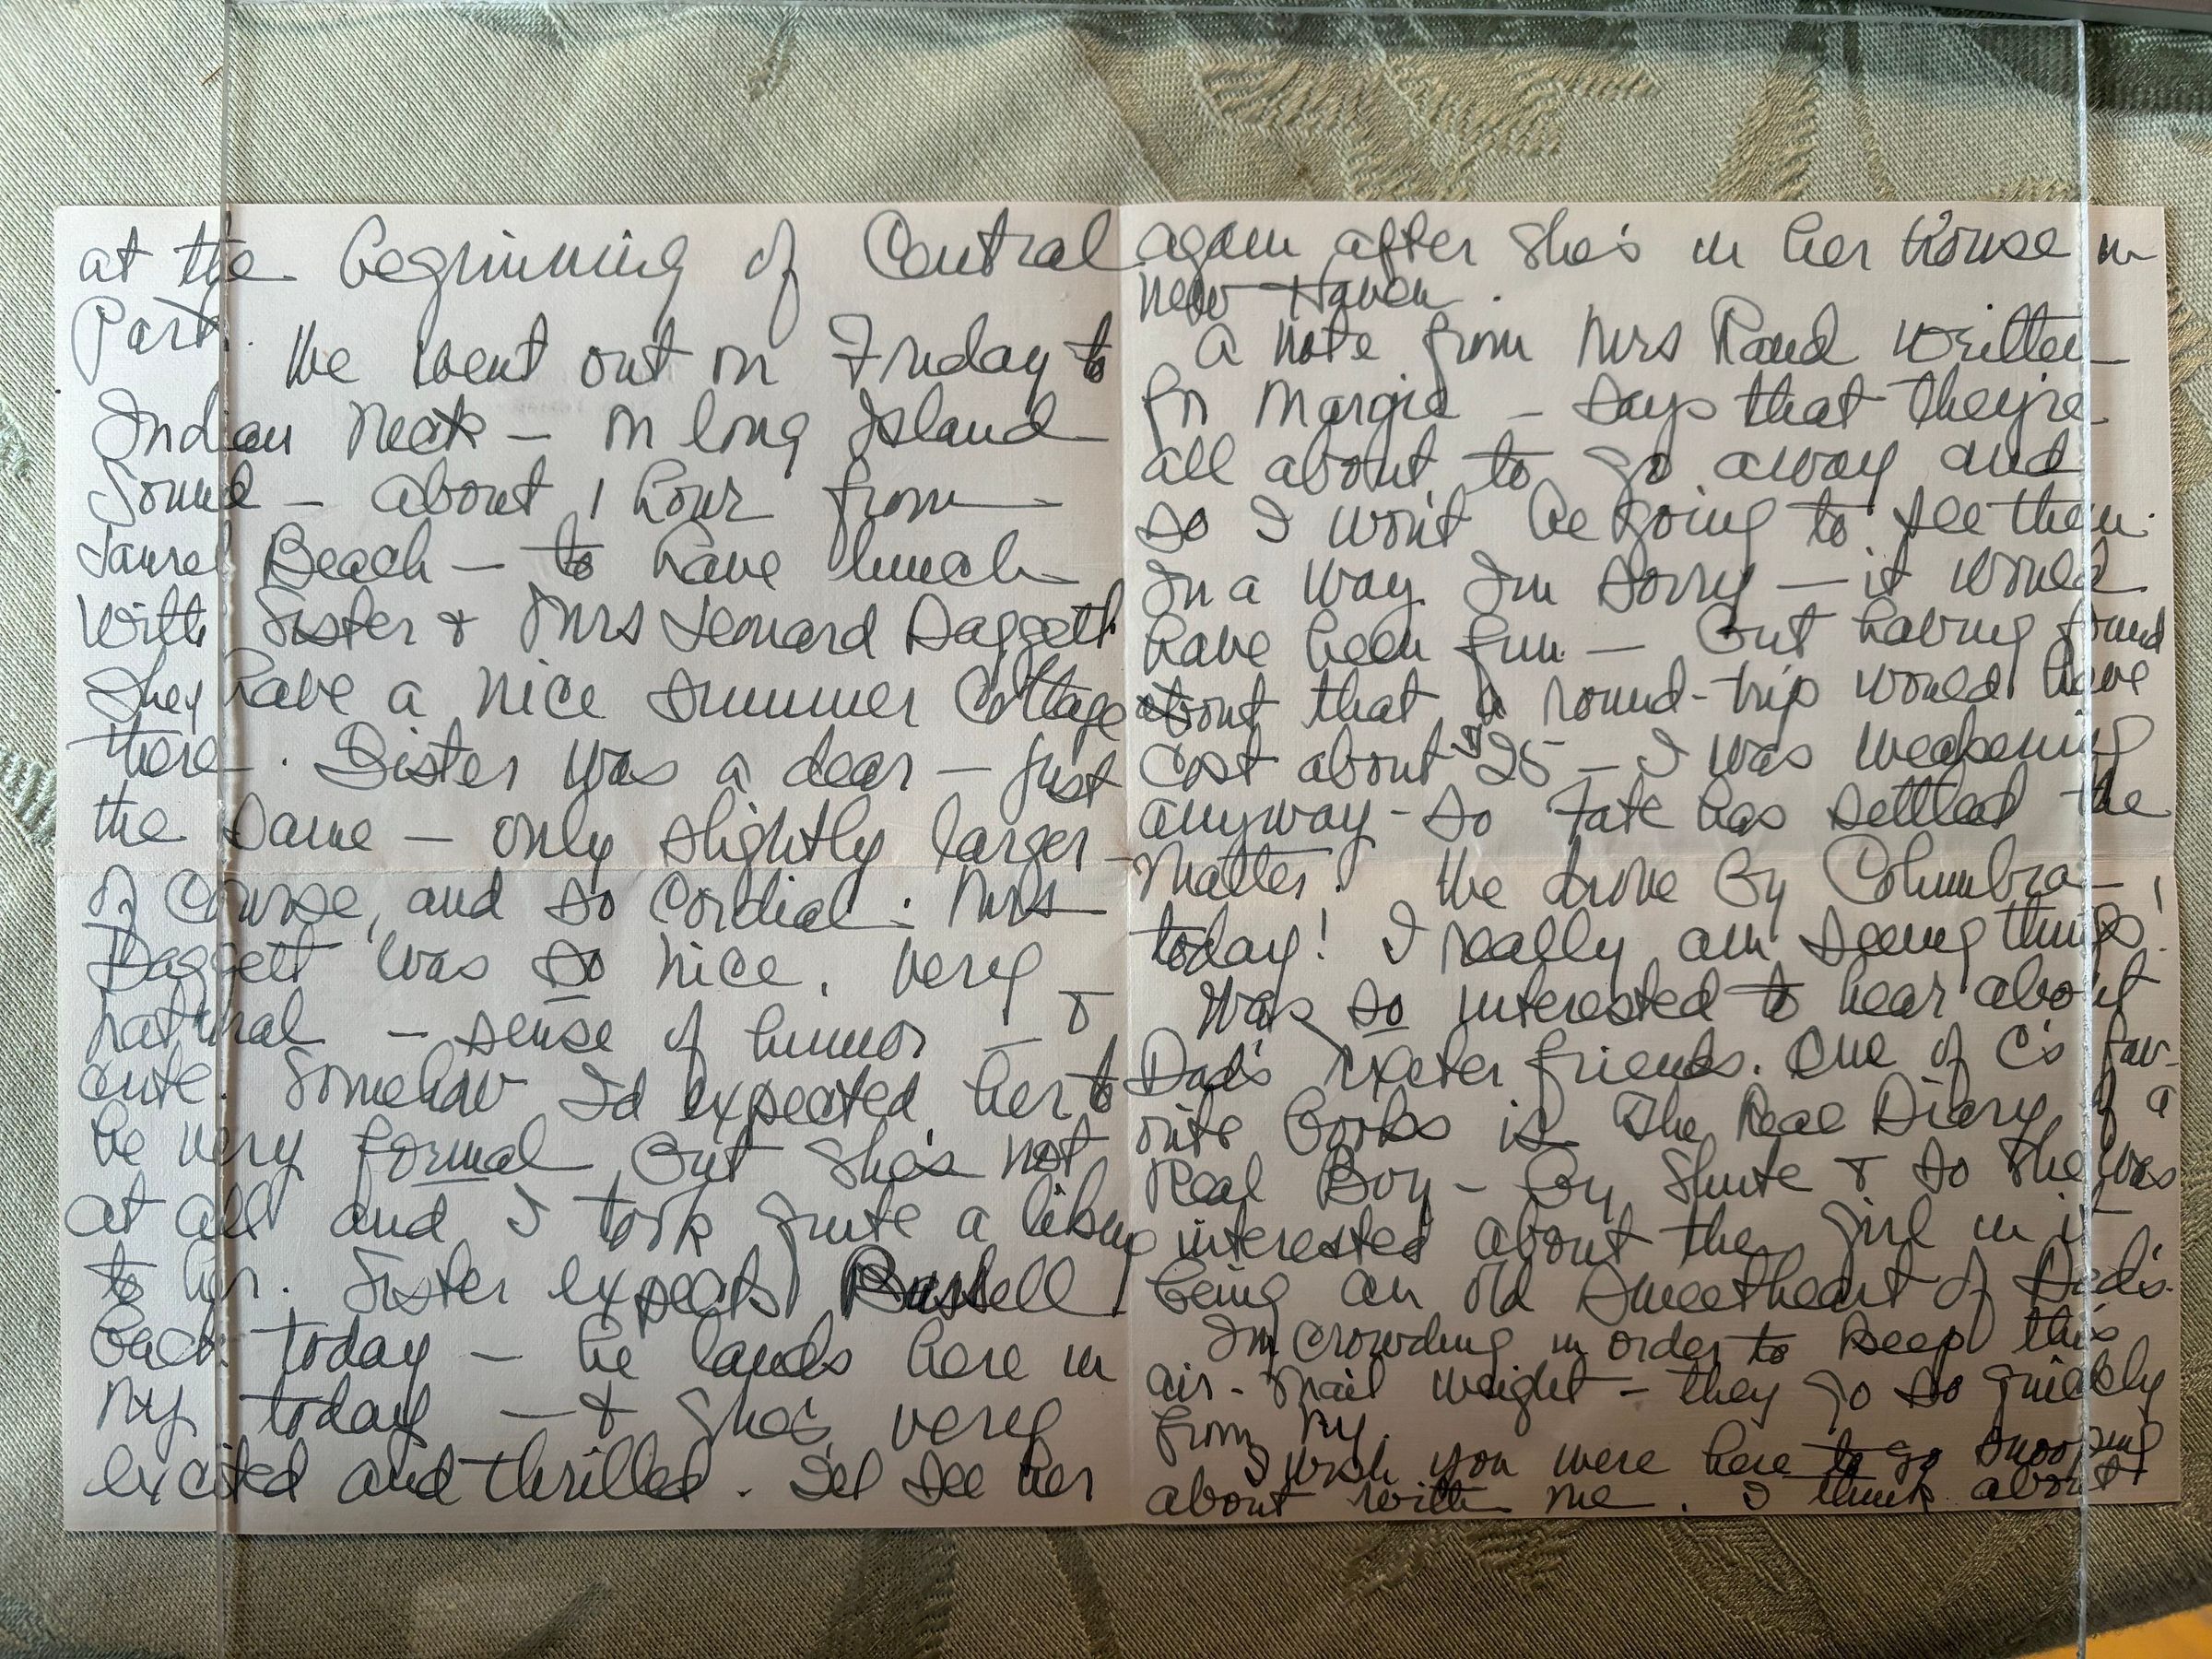 at the beginning of Central
Park.
We went out on Friday to
Indian Neck — on Long Island
Sound — about 1 hour from
Laurel Beach — to have lunch
with Sister & Mrs Leonard Daggett
They have a nice summer cottage
there. Sister was a dear — just
the same — only slightly larger —
of course, and so cordial. Mrs
Daggett was so nice. Very
natural — sense of humor — &
cute. Somehow I'd expected her to
be very formal but she's not
at all and I took quite a liking
to her. Sister expects Russell
back today — he lands here in
NY today — & she's very
excited and thrilled. I'll see her
again after she's in her house in
New Haven.
A note from Mrs Rand written
for Margie — says that they're
all about to go away and
so I won't be going to see them.
In a way I'm sorry — it would
have been fun — but having found
about that a round-trip would have
cost about $25 — I was weakening
anyway - so Fate has settled the
matter! We drove by Columbia —
today! I really am seeing things!
Was so interested to hear about
Dad's Exeter friends. One of C's fav-
orite books is The Real Diary of a
Real Boy - by Shute & so she was
interested about the girl in it
being an old sweetheart of Dad's.
I'm crowding in order to keep this
air-mail weight — they go so quickly
from NY.
I wish you were here to go snooping
about with me. I think about